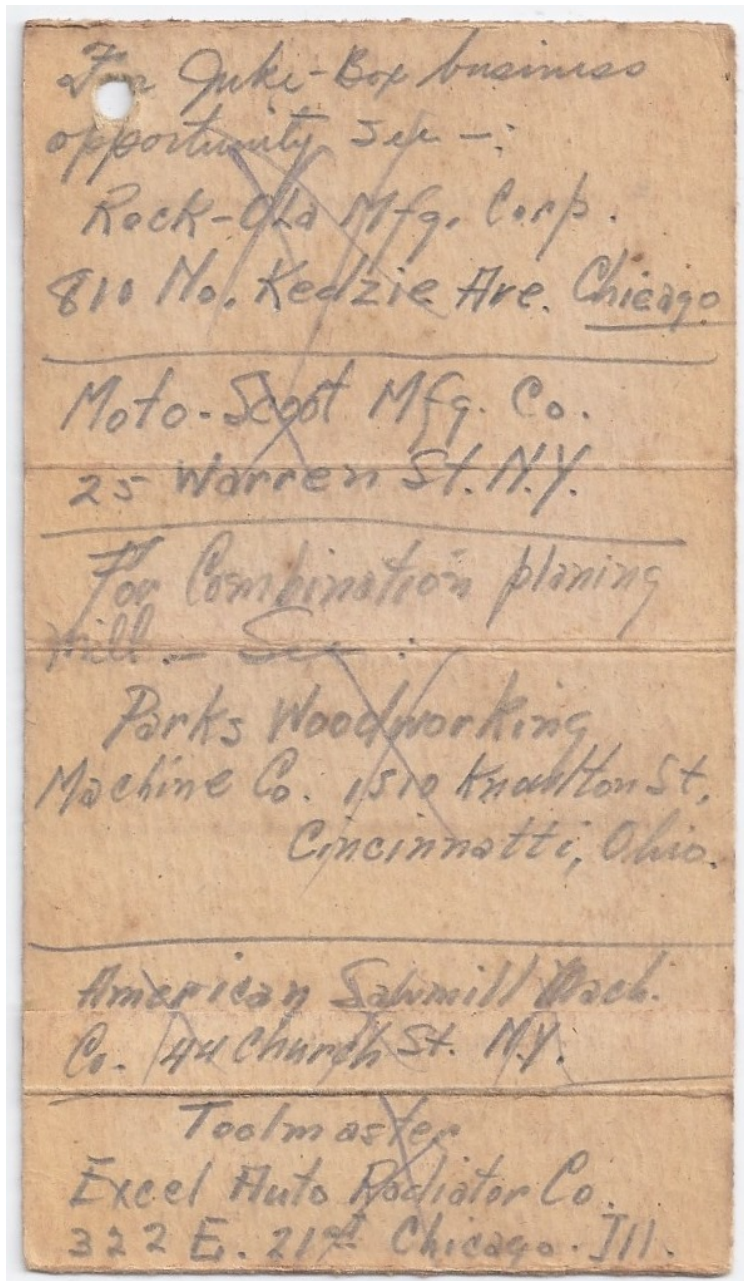 For Juke-Box business
opportunity see -:
Rock-Ola Mfg. Corp.
810 No. Kedzie Ave. Chicago
Moto-Scoot Mfg. Co.
25 Warren St. N.Y.
For Combination planing
Mill - See :
Parks Woodworking
Machine Co. 1510 Knowlton St,
Cincinnatti, Ohio.
American Sawmill Mach.
Co. 44 Church St. N.Y.
Toolmaster
Excel Auto Radiator Co.
322 E. 21st Chicago. Ill.